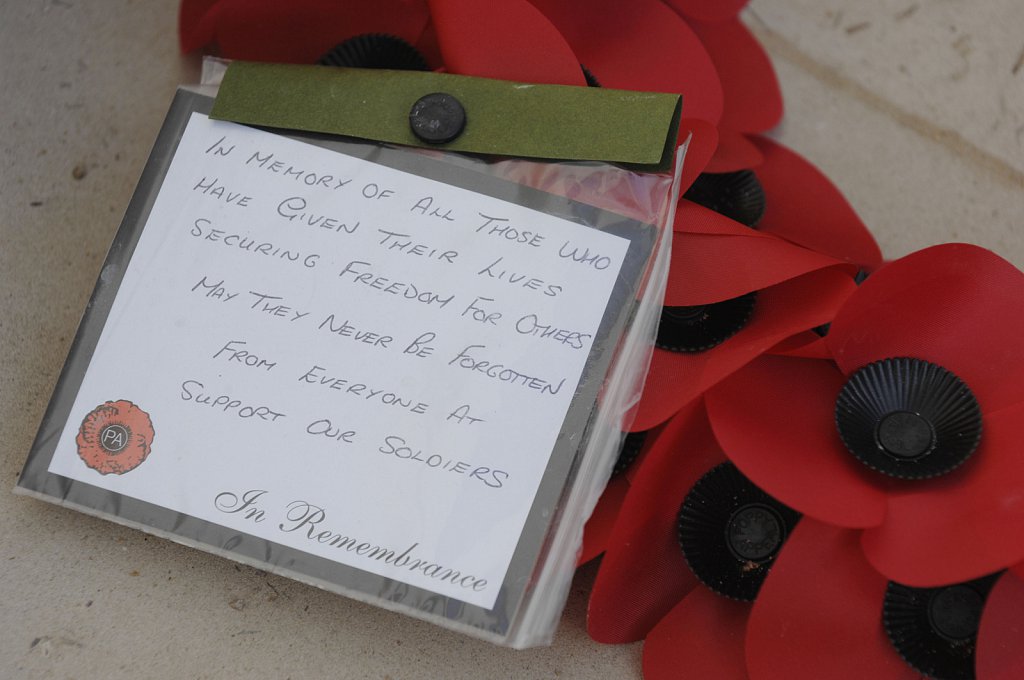 In Memory Of All Those Who
Have Given Their Lives
Securing Freedom For Others
May They Never Be Forgotten
From Everyone At
Support Our Soldiers
PA
In Remembrance